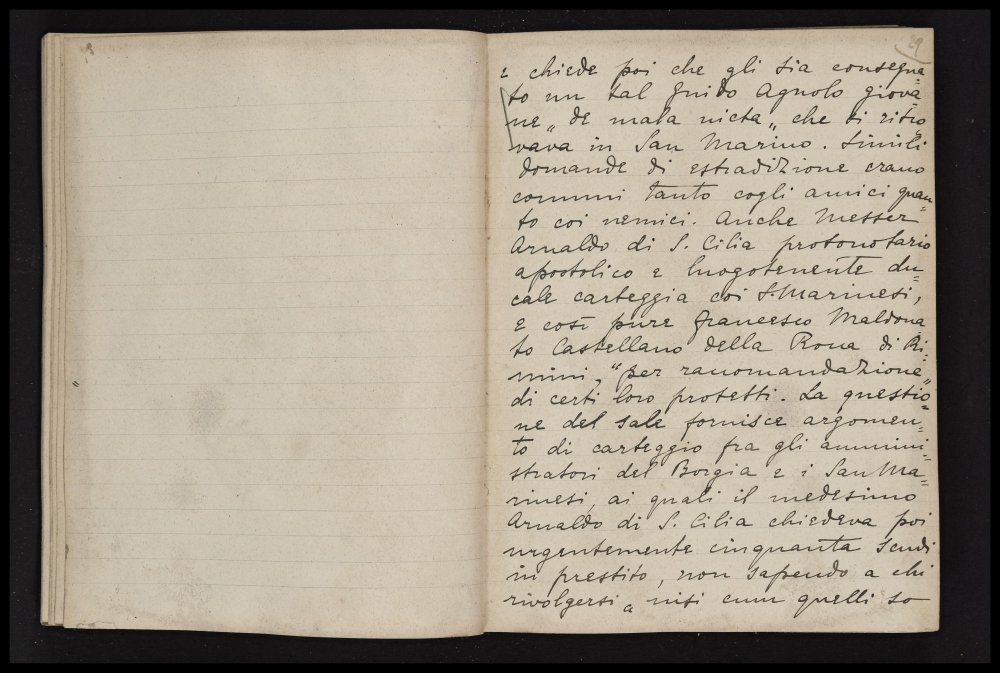 29
e chiede poi che gli sia consegna=
to un tal Guido Agnolo giova=
ne „de mala victa„ che si ritro
vava in San Marino. Simili
domande di estradizione erano
comuni tanto cogli amici quan=
to coi nemici. Anche Messer
Arnaldo di S. Cilia protonotario
apostolico e luogotenente du=
cale carteggia coi S. Marinesi,
e così pure Francesco Maldona
to Castellano della Rocca di Ri=
mini, “per racomandazione„
di certi loro protetti. La questio=
ne del sale fornisce argomen=
to di carteggio fra gli ammini=
stratori del Borgia e i San Ma=
rinesi, ai quali il medesimo
Arnaldo di S. Cilia chiedeva poi
urgentemente cinquanta scudi
in prestito, non sapendo a chi
rivolgersi a nisi cum quelli so